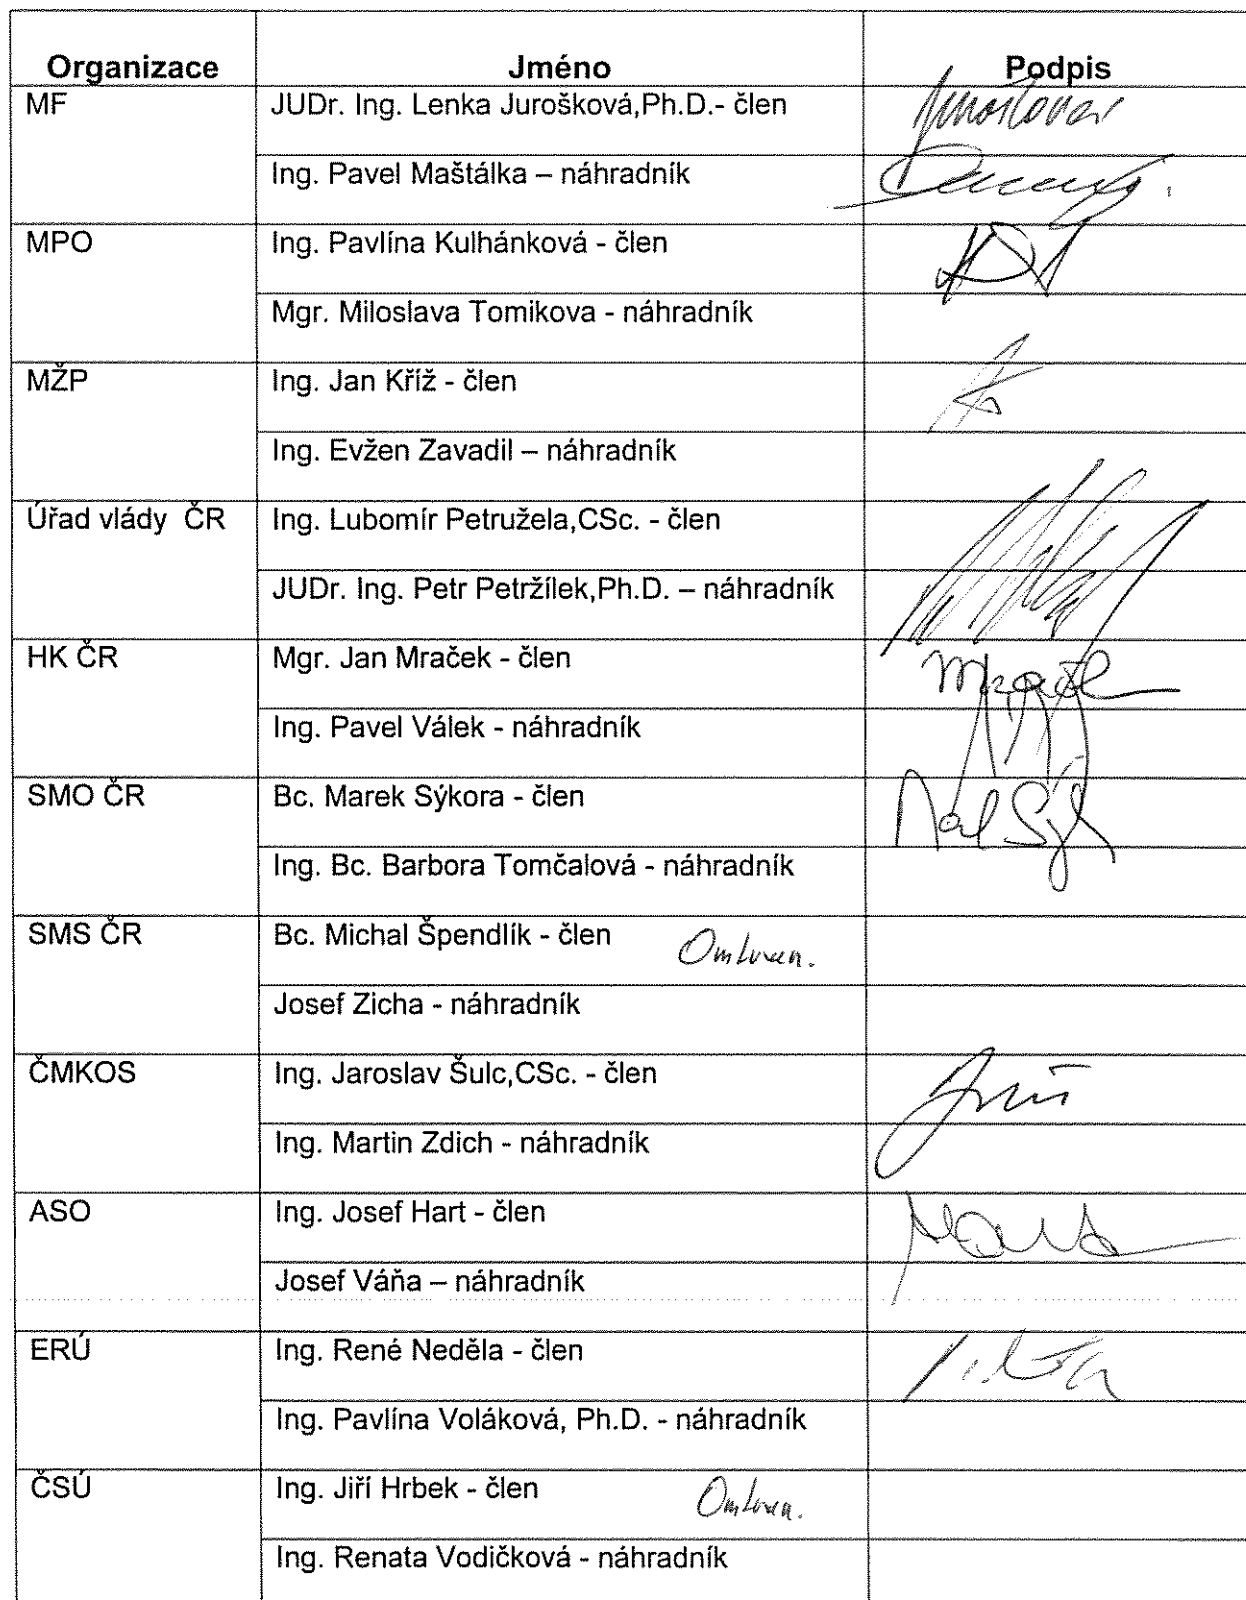 Organizace Jméno Podpis
MF JUDr. Ing. Lenka Jurošková,Ph.D.- člen
Ing. Pavel Maštálka – náhradník
MPO Ing. Pavlína Kulhánková - člen
Mgr. Miloslava Tomikova - náhradník
MŽP Ing. Jan Kříž - člen
Ing. Evžen Zavadil – náhradník
Úřad vlády ČR Ing. Lubomír Petružela,CSc. - člen
JUDr. Ing. Petr Petržílek,Ph.D. – náhradník
HK ČR Mgr. Jan Mraček - člen
Ing. Pavel Válek - náhradník
SMO ČR Bc. Marek Sýkora - člen
Ing. Bc. Barbora Tomčalová - náhradník
SMS ČR Bc. Michal Špendlík - člen Omluven.
Josef Zicha - náhradník
ČMKOS Ing. Jaroslav Šulc,CSc. - člen
Ing. Martin Zdich - náhradník
ASO Ing. Josef Hart - člen
Josef Váňa – náhradník
ERÚ Ing. René Neděla - člen
Ing. Pavlína Voláková, Ph.D. - náhradník
ČSÚ Ing. Jiří Hrbek - člen Omluven.
Ing. Renata Vodičková - náhradník